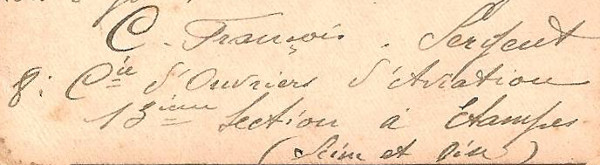 C. François. Sergent
8: Cie d'Ouvriers d'Aviation
13ième Section à Etampes
(Seine et Oise)